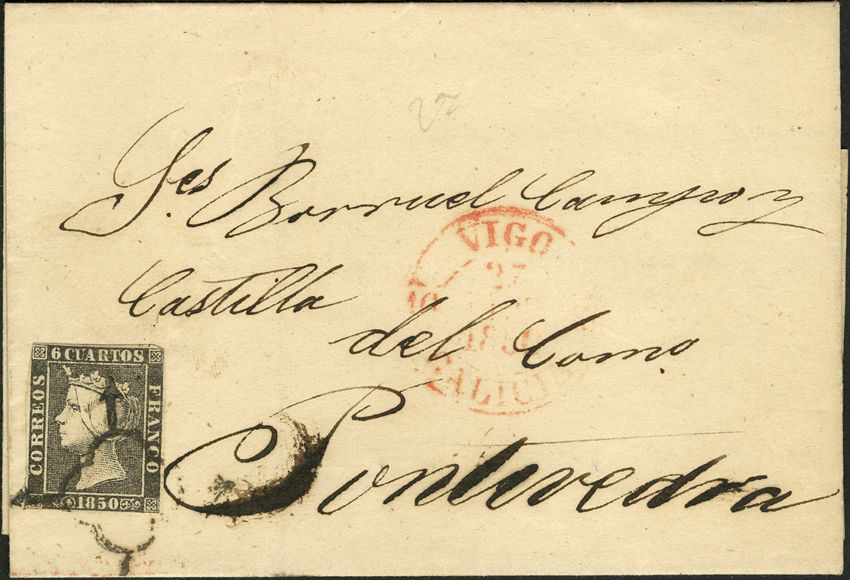 Sres Borruel Campo y
Castilla
del Como
Pontevedra
VIGO
27
10
1850
GALICIA
6 CUARTOS
CORREOS
FRANCO
1850